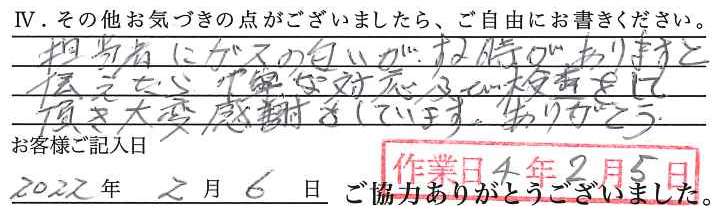 Ⅳ．その他お気づきの点がございましたら、ご自由にお書きください。
担当者にガスの匂いがする時がありますと
伝えたら丁寧な対応及び検査をして
頂き大変感謝をしています。ありがとう
お客様ご記入日
作業日 4年2月5日
2022年 2月6日 ご協力ありがとうございました。